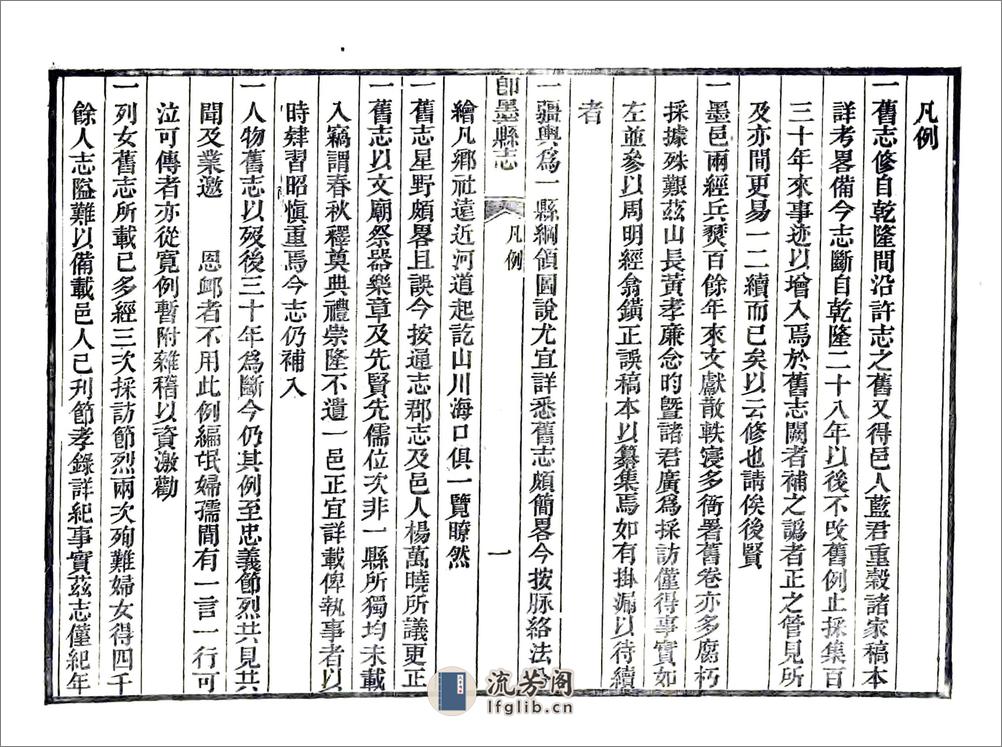 凡例
一舊志修自乾隆間沿許志之舊又得邑人藍君重穀諸家稿本
詳考畧備今志斷自乾隆二十八年以後不改舊例止採集百
三十年來事迹以增入焉於舊志闕者補之譌者正之管見所
及亦間更易一二續而已矣以云修也請俟後賢
一墨邑兩經兵燹百餘年來文獻散軼寖多衙署舊卷亦多腐朽
採據殊艱茲山長黃孝廉念昀曁諸君廣爲採訪僅得事實如
左並參以周明經翕鐄正誤稿本以纂集焉如有掛漏以待續
者
一疆輿爲一縣綱領圖說尤宜詳悉舊志頗簡畧今按脉絡法分
即墨縣志
凡例
一
繪凡鄉社遠近河道起訖山川海口俱一覽瞭然
一舊志星野頗畧且誤今按通志郡志及邑人楊萬曉所議更正
一舊志以文廟祭器樂章及先賢先儒位次非一縣所獨均未載
入竊謂春秋釋奠典禮崇隆不遺一邑正宜詳載俾執事者以
時肄習昭愼重焉今志仍補入
一人物舊志以歿後三十年爲斷今仍其例至忠義節烈共見共
聞及業邀 恩卹者不用此例編氓婦孺間有一言一行可
泣可傳者亦從寬例暫附雜稽以資激勸
一列女舊志所載已多經三次採訪節烈兩次殉難婦女得四千
餘人志隘難以備載邑人已刋節孝錄詳紀事實茲志僅紀年
流芳阁
lfglib.cn